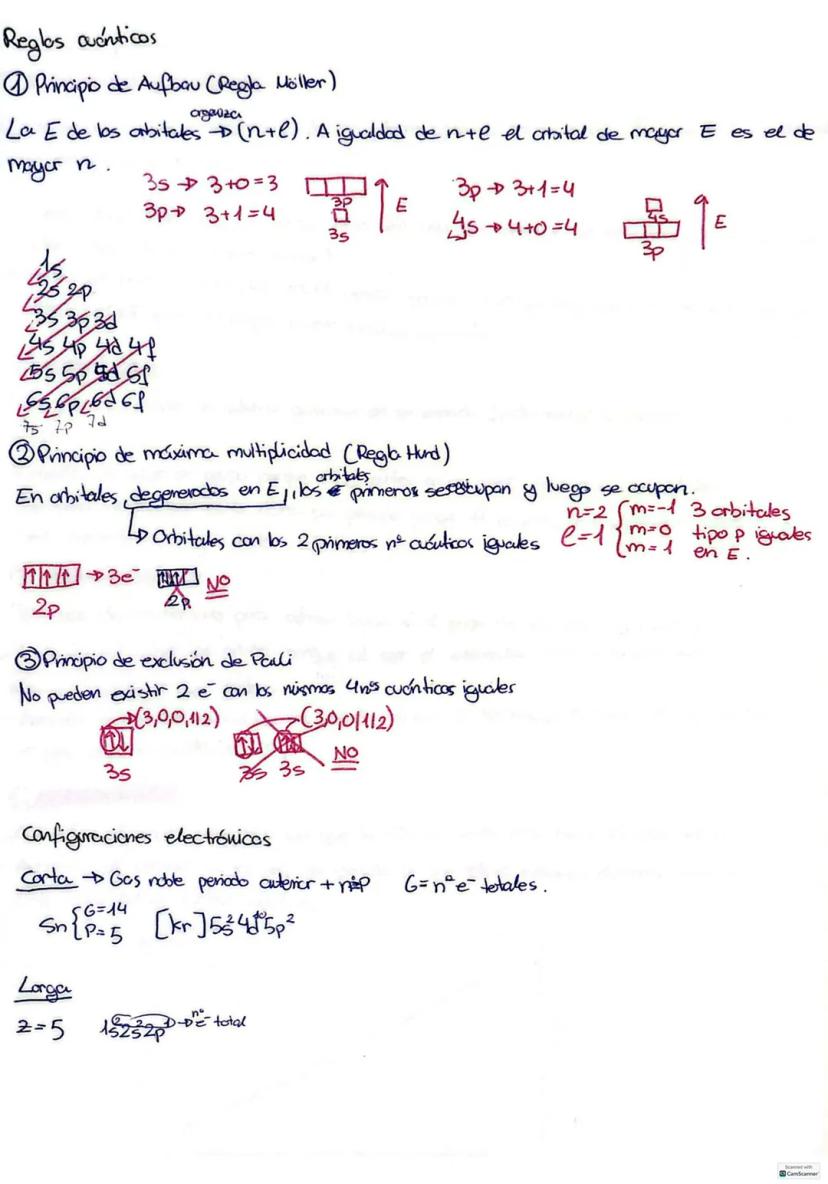 Reglas cuánticas
① Principio de Aufbau (Regla Möller)
organiza
La E de los orbitales → (n+l). A igualdad de n+l el orbital de mayor E es el de
mayor n.
3s → 3+0=3
3p → 3+1=4
3p
3s
E
3p → 3+1=4
4s → 4+0=4
4s
3p
E
1s
2s 2p
3s 3p 3d
4s 4p 4d 4f
5s 5p 5d 5f
6s 6p 6d 6f
7s 7p 7d
② Principio de máxima multiplicidad (Regla Hund)
orbitales
En orbitales, degenerados en E, los primeros se ocupan y luego se ocupan.
↳ Orbitales con los 2 primeros nº cuánticos iguales
n=2
l=1
m=-1
m=0
m=1
3 orbitales
tipo p iguales
en E.
↑ ↑ ↑ → 3e⁻
2p
2p
NO
③ Principio de exclusión de Pauli
No pueden existir 2 e⁻ con los mismos 4 nºs cuánticos iguales
(3,0,0,1/2)
↑↓
3s
(3,0,0,1/2)
3s 3s
NO
Configuraciones electrónicas
Corta → Gas noble periodo anterior + n=p G=nº e⁻ totales.
Sn { G=14
P=5
[Kr] 5s² 4d¹⁰ 5p²
Larga
z=5 1s² 2s² 2p¹ → nº e⁻ total
Scanned with
CamScanner